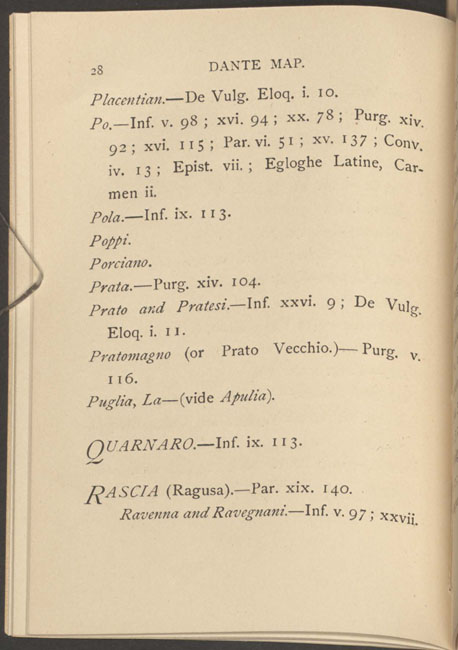 28 DANTE MAP.
Placentian.—De Vulg. Eloq. i. 10.
Po.—Inf. v. 98 ; xvi. 94 ; xx. 78 ; Purg. xiv.
92 ; xvi. 115 ; Par. vi. 51 ; xv. 137 ; Conv.
iv. 13 ; Epist. vii. ; Egloghe Latine, Car-
men ii.
Pola.—Inf. ix. 113.
Poppi.
Porciano.
Prata.—Purg. xiv. 104.
Prato and Pratesi.—Inf. xxvi. 9 ; De Vulg.
Eloq. i. 11.
Pratomagno (or Prato Vecchio.)—Purg. v.
116.
Puglia, La—(vide Apulia).
QUARNARO.—Inf. ix. 113.
RASCIA (Ragusa).—Par. xix. 140.
Ravenna and Ravegnani.—Inf. v. 97 ; xxvii.